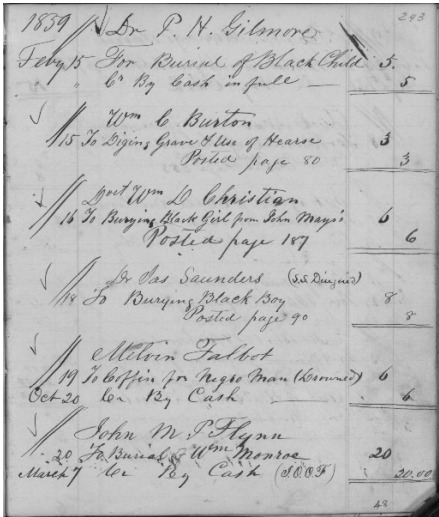 1859 Dr P. H. Gilmore 293
Feby 15 For Burial of Black Child 5.
" " Cr By Cash in full 5
Wm C. Burton
15 To Diging Grave & Use of Hearse 3
Posted page 80 3
Doct Wm D Christian
16 To Burying Black Girl from John Mays's 6
Posted page 187 6
Dr Jas Saunders
18 To Burying Black Boy 8
Posted page 90 8
Melvin Talbot
19 To Coffin for Negro Man (Drowned) 6
Oct 20 Cr By Cash 6
John M P Flynn
20 To Burial of Wm Monroe 20
March 7 Cr By Cash (I.O.O.F) 20.00
48